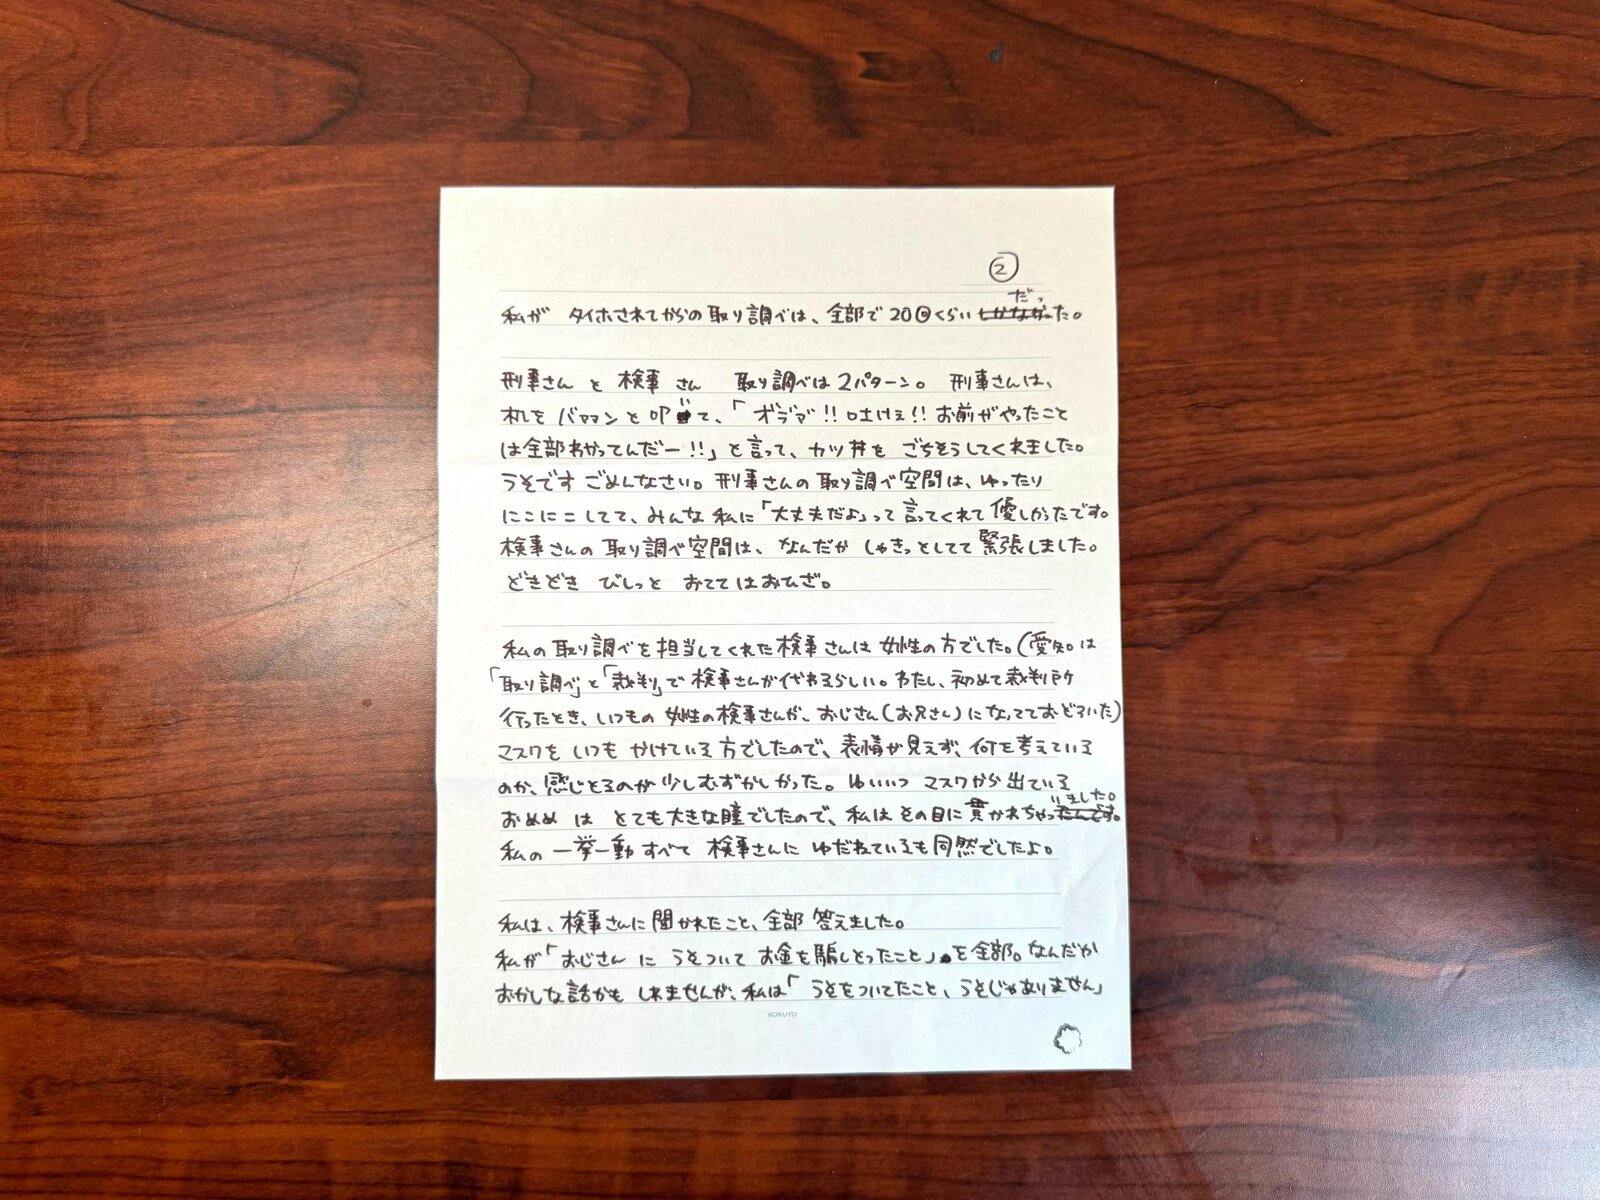 ②
私が タイホされてからの取り調べは、全部で20回くらいだった。
刑事さんと 検事さん 取り調べは2パターン。 刑事さんは、
机をバァァンと叩いて、「オラァ!!吐けぇ!!お前がやったこと
は全部わかってんだー!!」と言って、カツ丼を ごちそうしてくれました。
うそです ごめんなさい。刑事さんの取り調べ空間は、ゆったり
にこにこしてて、みんな私に「大丈夫だよ」って言ってくれて優しかったです。
検事さんの取り調べ空間は、なんだか しゃきっとしてて緊張しました。
どきどき びしっと おててはおひざ。
私の取り調べを担当してくれた検事さんは女性の方でした。(愛知は
「取り調べ」と「裁判」で検事さんが代わるらしい。わたし、初めて裁判所
行ったとき、いつもの女性の検事さんが、おじさん(お兄さん)になってておどろいた)
マスクをいつもかけている方でしたので、表情が見えず、何を考えている
のか、感じとるのが少しむずかしかった。ゆいいつ マスクから出ている
おめめは とても大きな瞳でしたので、私はその目に貫かれちゃいました。
私の一挙一動すべて 検事さんにゆだねているも同然でしたよ。
私は、検事さんに聞かれたこと、全部答えました。
私が「おじさんに うそついて お金を騙しとったこと」を全部。なんだか
おかしな話かもしれませんが、私は「うそをついてたこと、うそじゃありません」
KOKUYO